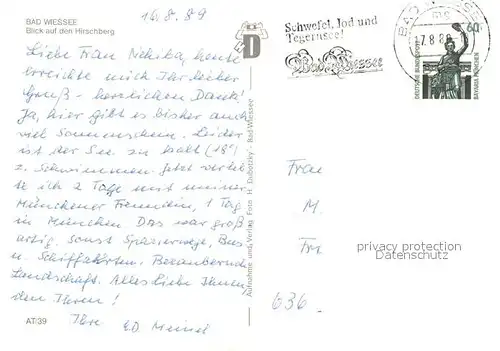 BAD WIESSEE
Blick auf den Hirschberg
16.8.89
Liebe Frau Nehika, heute
erreichte mich Ihr lieber
Gruß - herzlichen Dank!
Ja, hier gibt es bisher auch
viel Sonnenschein. Leider
ist der See zu kalt (18°)
z. Schwimmen. Jetzt verleb-
te ich 2 Tage mit meiner
Münchener Freundin, 1 Tag
in München Das war groß-
artig. Sonst Spazierwege, Bus
u. Schiffahrten. Bezaubernde
Landschaft. Alles Liebe Ihnen
den Ihren!
Ihre ED Meinel
AT/39
Aufnahme und Verlag Foto H. Dabotzky · Bad Wiessee
D
Schwefel, Jod und
Tegernsee!
Bad Wiessee
BAD WIESSEE
17.8.89
60
DEUTSCHE BUNDESPOST
BAVARIA MÜNCHEN
Frau
M.
Fr
636
privacy protection
Datenschutz